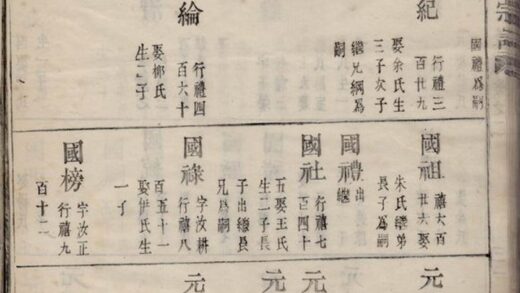 國禮爲嗣
紀
行禮三
百廿九
娶余氏生
三子次子
繼兄綱爲
嗣
綸
行禮四
百六十
娶柳氏
生二子
國祖
禧六百
廿六娶
朱氏繼弟
長子爲嗣
國禮
出繼
國社
行禧七
百四十
五娶王氏
生二子長
子出繼長
兄爲嗣
國祿
字汝耕
行禧八
百五十一
娶伊氏生
一子
國榜
字汝正
行禧九
百十二
元
元
元
元